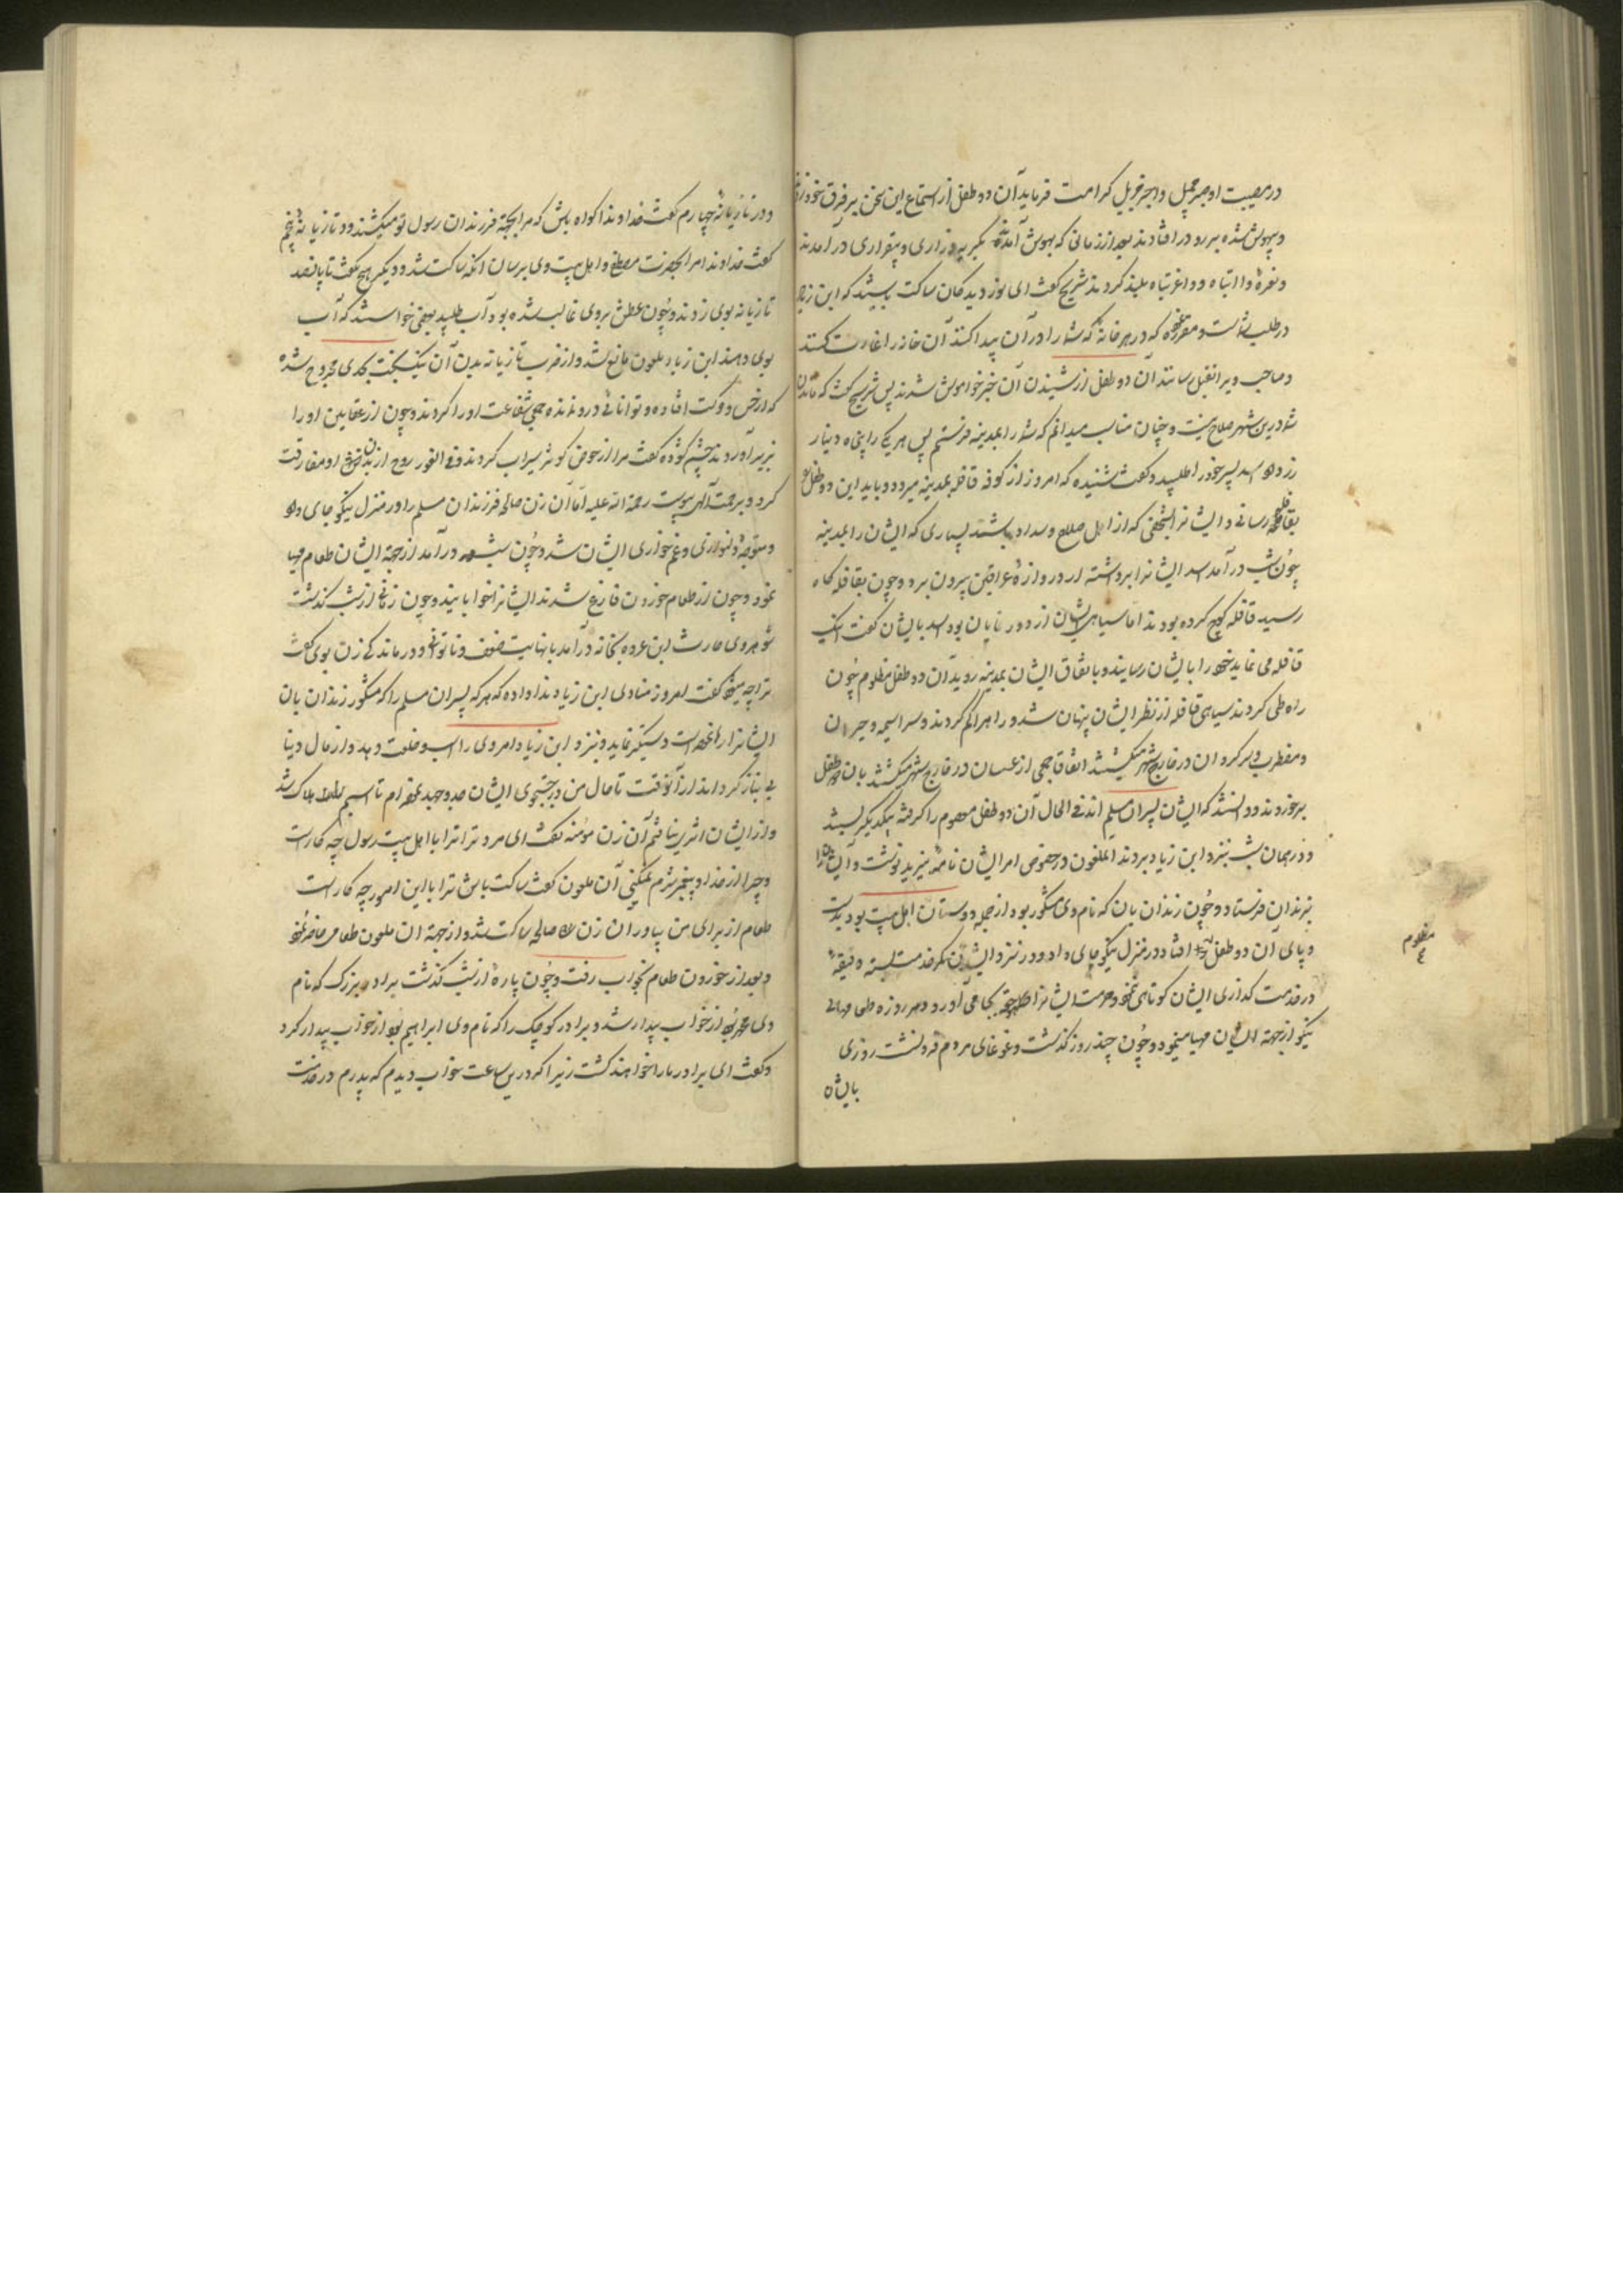 در مصیبت او صبر جمیل و اجر جزیل کرامت فرماید آن دو طفل از استماع این سخن بر فرق خود زدند
و بیهوش شده بر رو در افتادند بعد از زمانی که بهوش آمدند بگریه و زاری و بیقراری در آمدند
و نعرهٔ وا ابتاه و وا غربتاه بلند کردند شریح گفت ای نور دیدگان ساکت باشید که این زیاد
در طلب شماست و مقرر نموده که در هر خانه که شما را در آن پیدا کنند آن خانه را غارت کنند
و صاحب ویرا بقتل رسانند آن دو طفل از شنیدن آن خبر خواموش شدند پس شریح گفت که ماندن
شما درین شهر صلاح نیست و چنان مناسب میدانم که شما را بمدینه فرستم پس هر یک را پنجاه دینار
زر داد اسد پسر خود را طلبید و گفت شنیده که امروز از کوفه قافله بمدینه میرود و باید این دو طفل را
بقافله رسانی و ایشانرا بشخصی که از اهل صلاح و سداد باشند بسپاری که ایشان را بمدینه
چون شب در آمد اسد ایشانرا برداشته از دروازهٔ عراقین بیرون برد و چون بقافله گاه
رسید قافله کوچ کرده بودند اما سیاهی ایشان از دور نمایان بود اسد بایشان گفت اینک
قافله می نماید خود را بایشان رسانید و باتفاق ایشان بمدینه روید آن دو طفل مظلوم چون
راه طی کردند سیاهی قافله از نظر ایشان پنهان شد و راه را گم کردند و سراسیمه و حیران
و مضطرب و سرگردان در خارج شهر میگشتند اتفاقا جمعی از عسسان در خارج شهر میگشتند بآن دو طفل
برخوردند و دانستند که ایشان پسران مسلم اند فی الحال آن دو طفل معصوم را گرفته بیکدیگر بستند
و در همان شب بنزد ابن زیاد بردند آنملعون در خصوص امر ایشان نامه بیزید نوشت و ایشانرا
بزندان فرستاد و چون زندان بان که نام وی مشکور بود از جمله دوستان اهل بیت بود بدست
و پای آن دو طفل افتاد و در منزل نیکو جای داد و در نزد ایشان کمر خدمت بسته دقیقهٔ
در خدمت گذاری ایشان کوتاهی ننمود و حرمت ایشانرا بجا می آورد و هر روزه طعامهای
نیکو از جهة ایشان مهیا مینمود و چون چند روز گذشت و غوغای مردم فرو نشست روزی
بایشان
مظلوم
و در تازیانهٔ چهارم گفت خداوندا گواه باش که مرا بجهة فرزندان رسول تو میکشند و در تازیانهٔ پنجم
گفت خداوندا مرا بحضرت مصطفی و اهل بیت وی برسان آنگه ساکت شد و دیگر هیچ نگفت تا پانصد
تازیانه بوی زدند و چون عطش بروی غالب شده بود آب طلبید بعضی خواستند که آب
بوی دهند ابن زیاد ملعون مانع شد و از ضرب تازیانه بدن آن نیکبخت بحدی مجروح شده
که از حس و حرکت افتاده و توانائی درو نمانده جمعی شفاعت او را کردند و چون از عقابین او را
بزیر آوردند چشم گشوده گفت مرا از حوض کوثر سیراب کردند و فی الفور روح از بدن او مفارقت
کرد و برحمت آلهی پیوست رحمة الله علیه اما آن زن صالحه فرزندان مسلم را در منزل نیکو جای داد
و متوجه دلنوازی و غم خواری ایشان شد و چون شب در آمد از جهة ایشان طعام مهیا
نمود و چون از طعام خوردن فارغ شدند ایشانرا خوابانید و چون زمانی از شب گذشت
شوهر وی حارث ابن عروه بخانه در آمد با نهایت ضعف و ناتوانی و درماندگی زن بوی گفت
ترا چه میشود گفت امروز منادی ابن زیاد ندا داده که هر که پسران مسلم را که مشکور زندان بان
ایشانرا رها نموده است دستگیر نماید و بنزد ابن زیاد آورد وی را اسب و خلعت دهد و از مال دنیا
بی نیاز گرداند از آنوقت تا حال من در جستجوی ایشان جد و جهد نموده ام تا اسبم هلاک شد
و از ایشان اثری نیافتم آن زن مؤمنه گفت ای مرد ترا با اهل بیت رسول چه کار است
و چرا از خدا و پیغمبر شرم نمیکنی آن ملعون گفت ساکت باش ترا با این امور چه کار است
طعام از برای من بیاور آن زن صالحه ساکت شد و از جهة آن ملعون طعامی حاضر نمود
و بعد از خوردن طعام بخواب رفت و چون پارهٔ از شب گذشت برادر بزرگ که نام
وی محمد بود از خواب بیدار شد و برادر کوچک را که نام وی ابراهیم بود از خواب بیدار کرد
و گفت ای برادر ما را خواهند کشت زیرا که درین ساعت خواب دیدم که پدرم در خدمت